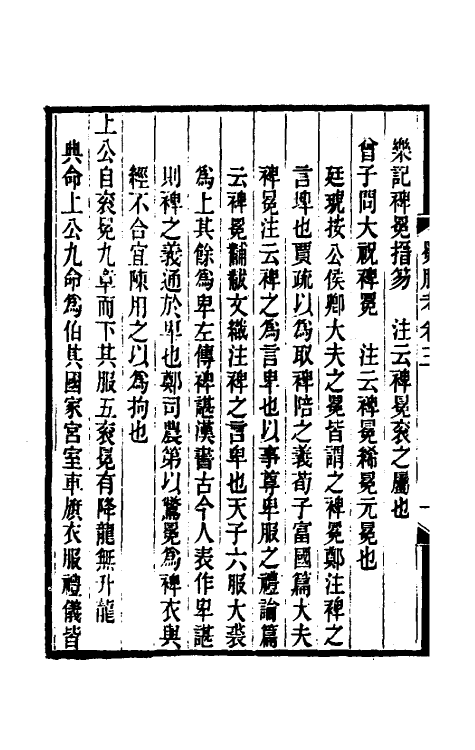 樂記裨冕搢笏　注云裨冕衮之屬也
曾子問大祝裨冕　注云裨冕絺冕元冕也
廷琥按公侯卿大夫之冕皆謂之裨冕鄭注裨之
言埤也賈疏以為取裨陪之義荀子富國篇大夫
裨冕注云裨之為言卑也以事尊卑服之禮論篇
云裨冕黼黻文織注裨之言卑也天子六服大裘
為上其餘為卑左傳裨諶漢書古今人表作卑諶
則裨之義通於卑也鄭司農第以鷩冕為裨衣與
經不合宜陳用之以為拘也
上公自衮冕九章而下其服五衮冕有降龍無升龍
典命上公九命為伯其國家宮室車旗衣服禮儀皆
冕服考卷三
一